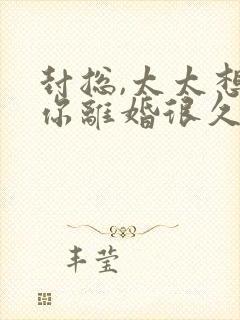 封总,太太想
你離婚很久
丰莹